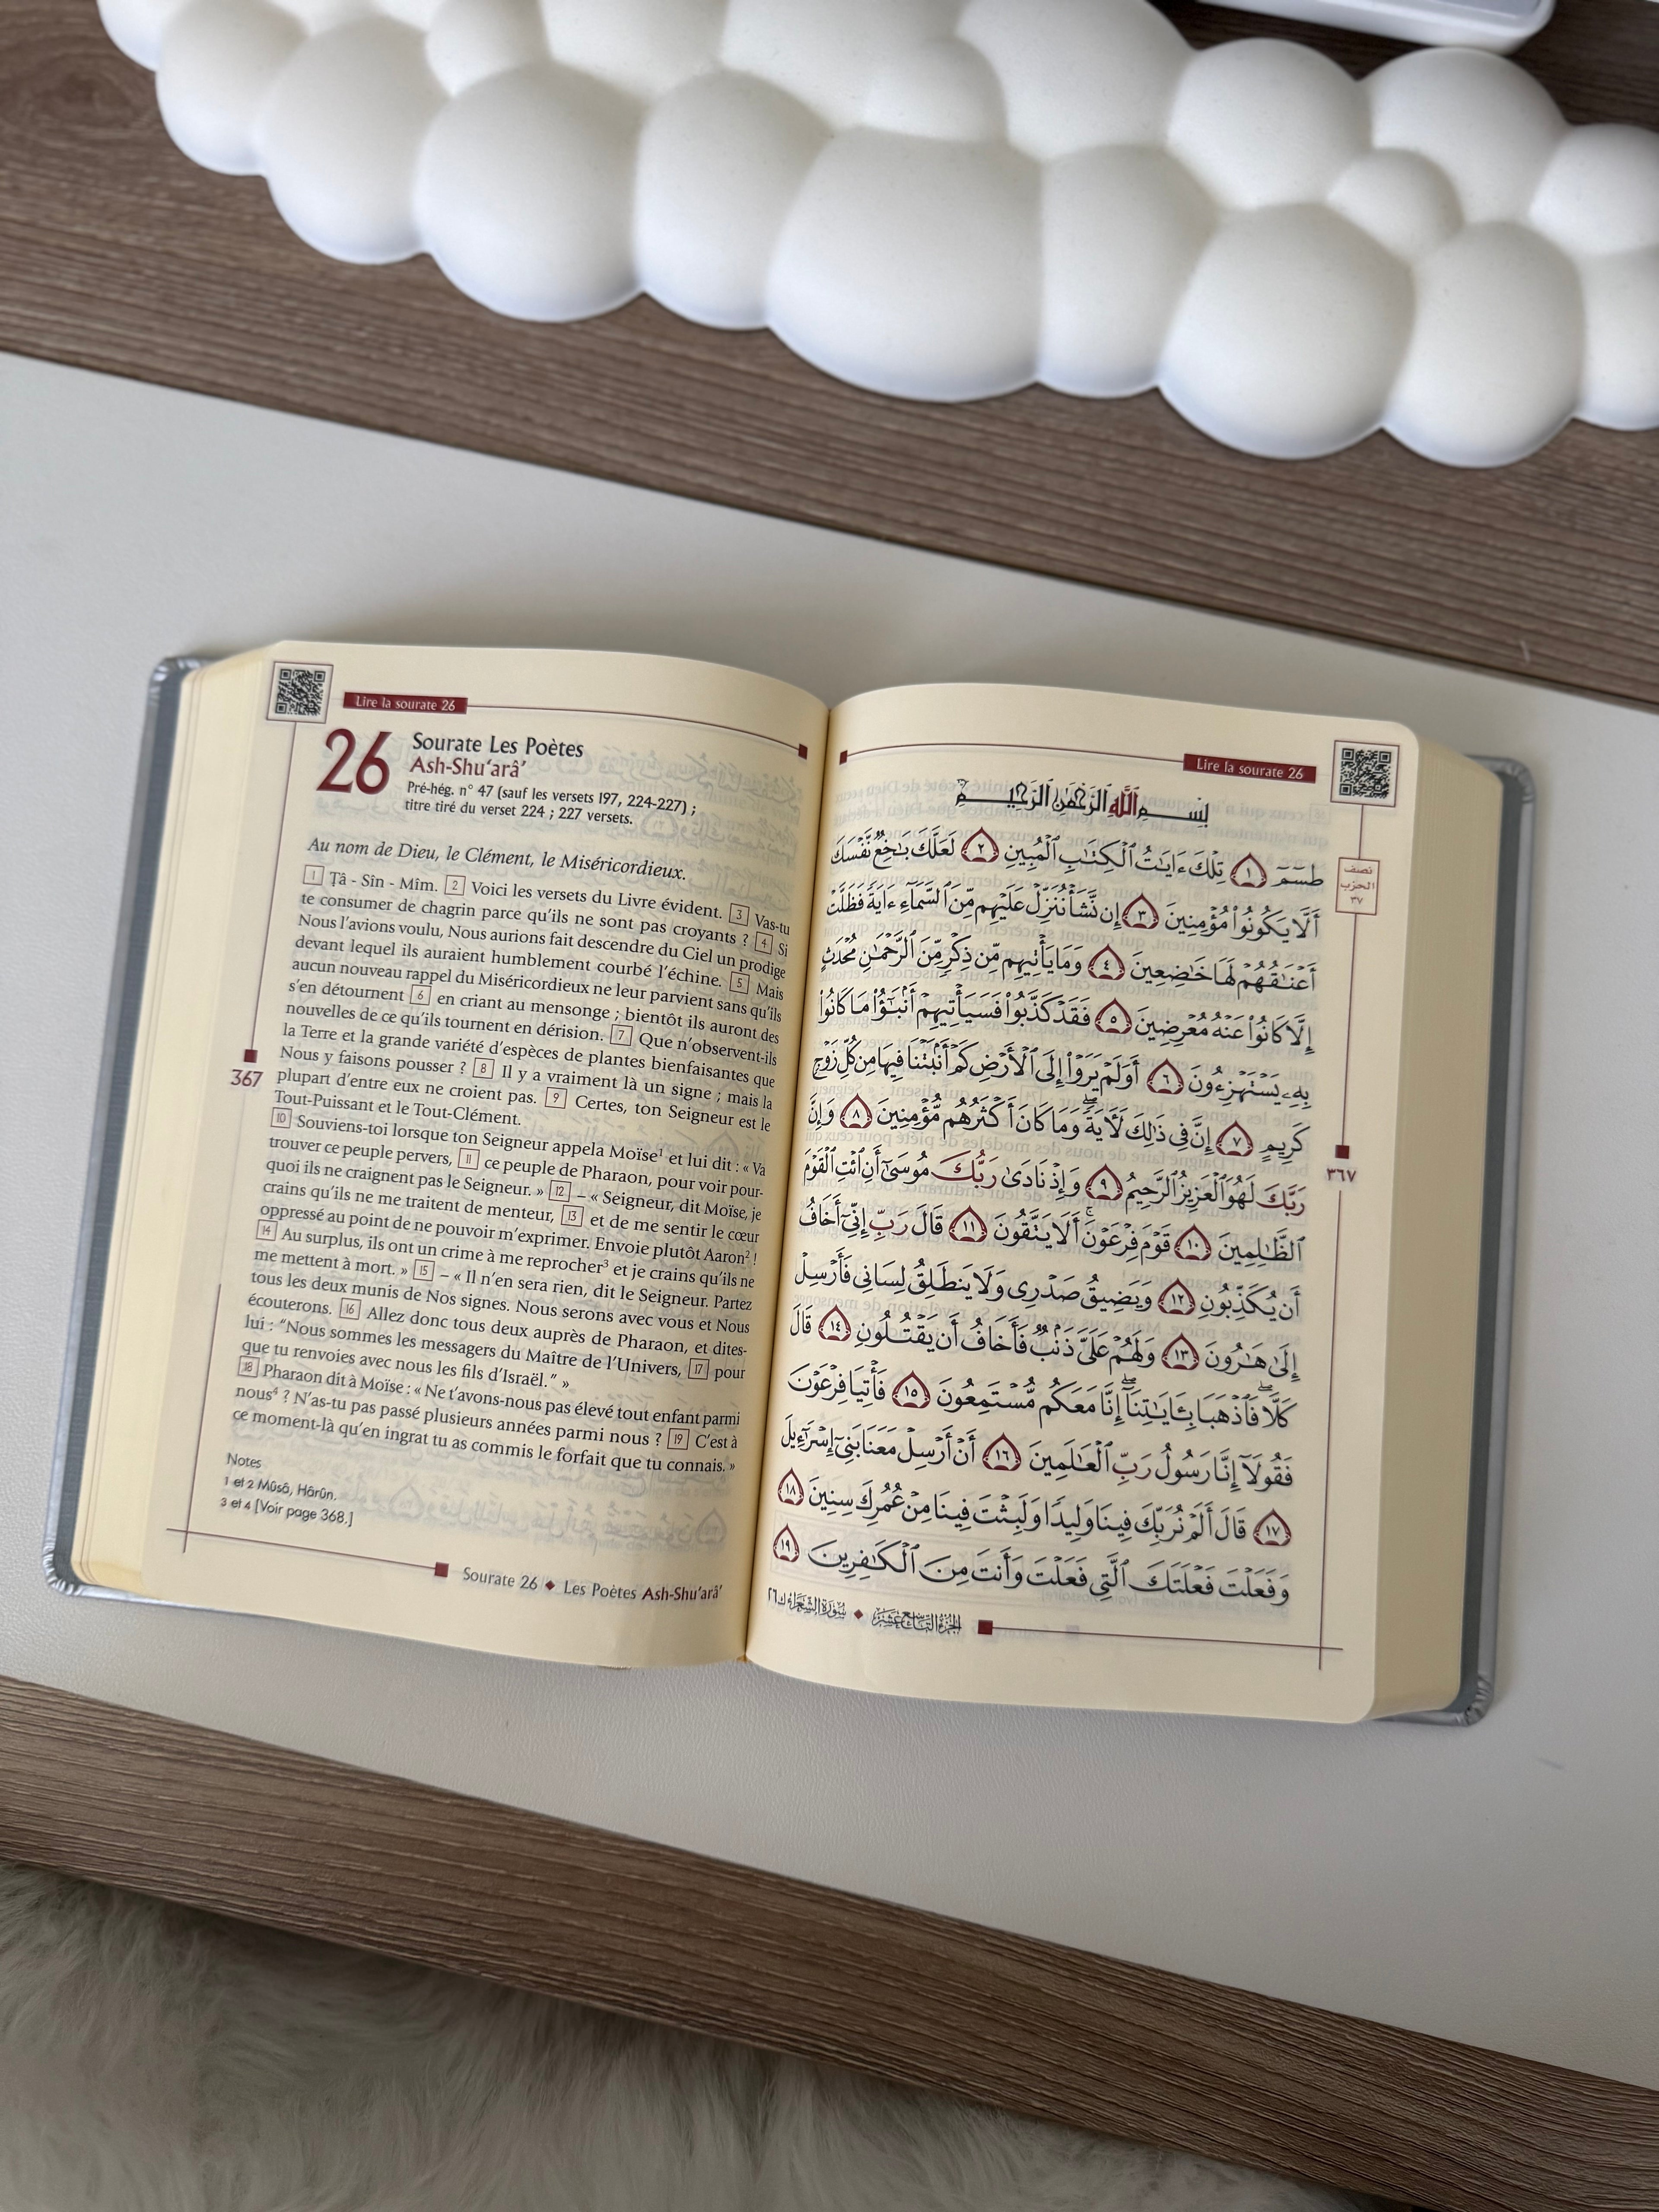 Lire la sourate 26
26
Sourate Les Poètes
Ash-Shu‘arâ’
Pré-hég. n° 47 (sauf les versets 197, 224-227) ;
titre tiré du verset 224 ; 227 versets.
Au nom de Dieu, le Clément, le Miséricordieux.
1 Ṭâ - Sîn - Mîm. 2 Voici les versets du Livre évident. 3 Vas-tu
te consumer de chagrin parce qu’ils ne sont pas croyants ? 4 Si
Nous l’avions voulu, Nous aurions fait descendre du Ciel un prodige
devant lequel ils auraient humblement courbé l’échine. 5 Mais
aucun nouveau rappel du Miséricordieux ne leur parvient sans qu’ils
s’en détournent 6 en criant au mensonge ; bientôt ils auront des
nouvelles de ce qu’ils tournent en dérision. 7 Que n’observent-ils
la Terre et la grande variété d’espèces de plantes bienfaisantes que
Nous y faisons pousser ? 8 Il y a vraiment là un signe ; mais la
plupart d’entre eux ne croient pas. 9 Certes, ton Seigneur est le
Tout-Puissant et le Tout-Clément.
10 Souviens-toi lorsque ton Seigneur appela Moïse¹ et lui dit : « Va
trouver ce peuple pervers, 11 ce peuple de Pharaon, pour voir pour-
quoi ils ne craignent pas le Seigneur. » 12 – « Seigneur, dit Moïse, je
crains qu’ils ne me traitent de menteur, 13 et de me sentir le cœur
oppressé au point de ne pouvoir m’exprimer. Envoie plutôt Aaron² !
14 Au surplus, ils ont un crime à me reprocher³ et je crains qu’ils ne
me mettent à mort. » 15 – « Il n’en sera rien, dit le Seigneur. Partez
tous les deux munis de Nos signes. Nous serons avec vous et Nous
écouterons. 16 Allez donc tous deux auprès de Pharaon, et dites-
lui : “Nous sommes les messagers du Maître de l’Univers, 17 pour
que tu renvoies avec nous les fils d’Israël.” »
18 Pharaon dit à Moïse : « Ne t’avons-nous pas élevé tout enfant parmi
nous⁴ ? N’as-tu pas passé plusieurs années parmi nous ? 19 C’est à
ce moment-là qu’en ingrat tu as commis le forfait que tu connais. »
367
Notes
1 et 2 Mûsâ, Hârûn.
3 et 4 [Voir page 368.]
Sourate 26 ◆ Les Poètes Ash-Shu‘arâ’
Lire la sourate 26
بِسْمِ ٱللَّهِ ٱلرَّحْمَٰنِ ٱلرَّحِيمِ
طسٓمٓ ١ تِلْكَ ءَايَٰتُ ٱلْكِتَٰبِ ٱلْمُبِينِ ٢ لَعَلَّكَ بَٰخِعٌ نَّفْسَكَ
أَلَّا يَكُونُوا۟ مُؤْمِنِينَ ٣ إِن نَّشَأْ نُنَزِّلْ عَلَيْهِم مِّنَ ٱلسَّمَآءِ ءَايَةً فَظَلَّتْ
أَعْنَٰقُهُمْ لَهَا خَٰضِعِينَ ٤ وَمَا يَأْتِيهِم مِّن ذِكْرٍ مِّنَ ٱلرَّحْمَٰنِ مُحْدَثٍ
إِلَّا كَانُوا۟ عَنْهُ مُعْرِضِينَ ٥ فَقَدْ كَذَّبُوا۟ فَسَيَأْتِيهِمْ أَنۢبَٰٓؤُا۟ مَا كَانُوا۟
بِهِۦ يَسْتَهْزِءُونَ ٦ أَوَلَمْ يَرَوْا۟ إِلَى ٱلْأَرْضِ كَمْ أَنۢبَتْنَا فِيهَا مِن كُلِّ زَوْجٍ
كَرِيمٍ ٧ إِنَّ فِى ذَٰلِكَ لَءَايَةً ۖ وَمَا كَانَ أَكْثَرُهُم مُّؤْمِنِينَ ٨ وَإِنَّ
رَبَّكَ لَهُوَ ٱلْعَزِيزُ ٱلرَّحِيمُ ٩ وَإِذْ نَادَىٰ رَبُّكَ مُوسَىٰٓ أَنِ ٱئْتِ ٱلْقَوْمَ
ٱلظَّٰلِمِينَ ١٠ قَوْمَ فِرْعَوْنَ ۚ أَلَا يَتَّقُونَ ١١ قَالَ رَبِّ إِنِّىٓ أَخَافُ
أَن يُكَذِّبُونِ ١٢ وَيَضِيقُ صَدْرِى وَلَا يَنطَلِقُ لِسَانِى فَأَرْسِلْ
إِلَىٰ هَٰرُونَ ١٣ وَلَهُمْ عَلَىَّ ذَنۢبٌ فَأَخَافُ أَن يَقْتُلُونِ ١٤ قَالَ
كَلَّا ۖ فَٱذْهَبَا بِـَٔايَٰتِنَآ ۖ إِنَّا مَعَكُم مُّسْتَمِعُونَ ١٥ فَأْتِيَا فِرْعَوْنَ
فَقُولَآ إِنَّا رَسُولُ رَبِّ ٱلْعَٰلَمِينَ ١٦ أَنْ أَرْسِلْ مَعَنَا بَنِىٓ إِسْرَٰٓءِيلَ
١٧ قَالَ أَلَمْ نُرَبِّكَ فِينَا وَلِيدًا وَلَبِثْتَ فِينَا مِنْ عُمُرِكَ سِنِينَ ١٨
وَفَعَلْتَ فَعْلَتَكَ ٱلَّتِى فَعَلْتَ وَأَنتَ مِنَ ٱلْكَٰفِرِينَ ١٩
نصف
الحزب
٣٧
٣٦٧
الجزء التاسع عشر ◆ سورة الشعراء ٢٦